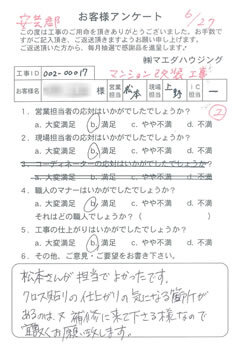 安芸郡
お客様アンケート
6/27
この度は工事のご用命を頂きありがとうございました。お手数
ですがご記入頂き、ご返送頂きますようお願い申し上げます。
ご返送頂いた方から、毎月抽選で感謝品を進呈します。
㈱マエダハウジング
工事ID 002-00017
マンション改装工事
お客様名 様 営業担当 松本 現場担当 上野 IC担当 ー
②
1. 営業担当者の応対はいかがでしたでしょうか?
a. 大変満足 b. 満足 c. やや不満 d. 不満
2. 現場担当者の応対はいかがでしたでしょうか?
a. 大変満足 b. 満足 c. やや不満 d. 不満
3. コーディネーターの応対はいかがでしたでしょうか?
a. 大変満足 b. 満足 c. やや不満 d. 不満
4. 職人のマナーはいかがでしたでしょうか?
a. 大変満足 b. 満足 c. やや不満 d. 不満
それはどの職人でしょうか?( )
5. 工事の仕上がりはいかがでしたでしょうか?
a. 大変満足 b. 満足 c. やや不満 d. 不満
6. その他、ご意見・ご要望をお書き下さい。
松本さんが担当でよかったです。
クロス貼りの仕上がりの気になる箇所が
あるのは、又補修に来て下さる様なので
宜敷くお願い致します。